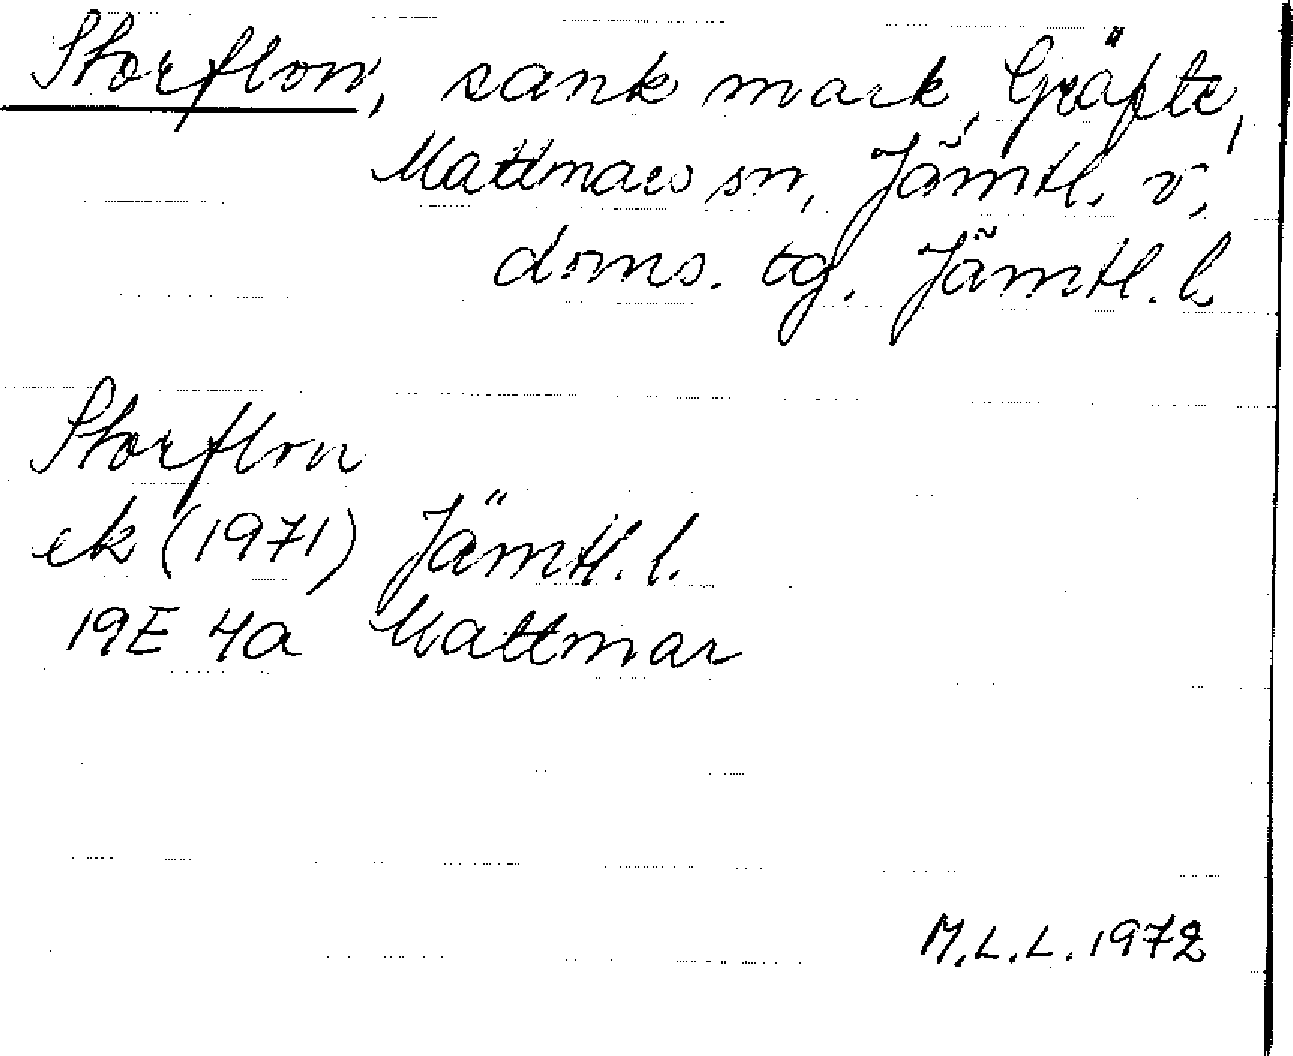 Storflon, sank mark, Gräfte,
Mattmars sn, Jämtl. v.
doms. tg. Jämtl. l.
Storflon
ek (1971) Jämtl. l.
19E 4a Mattmar
M.L.L. 1972